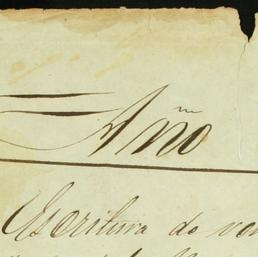 Año
Escritura de ven